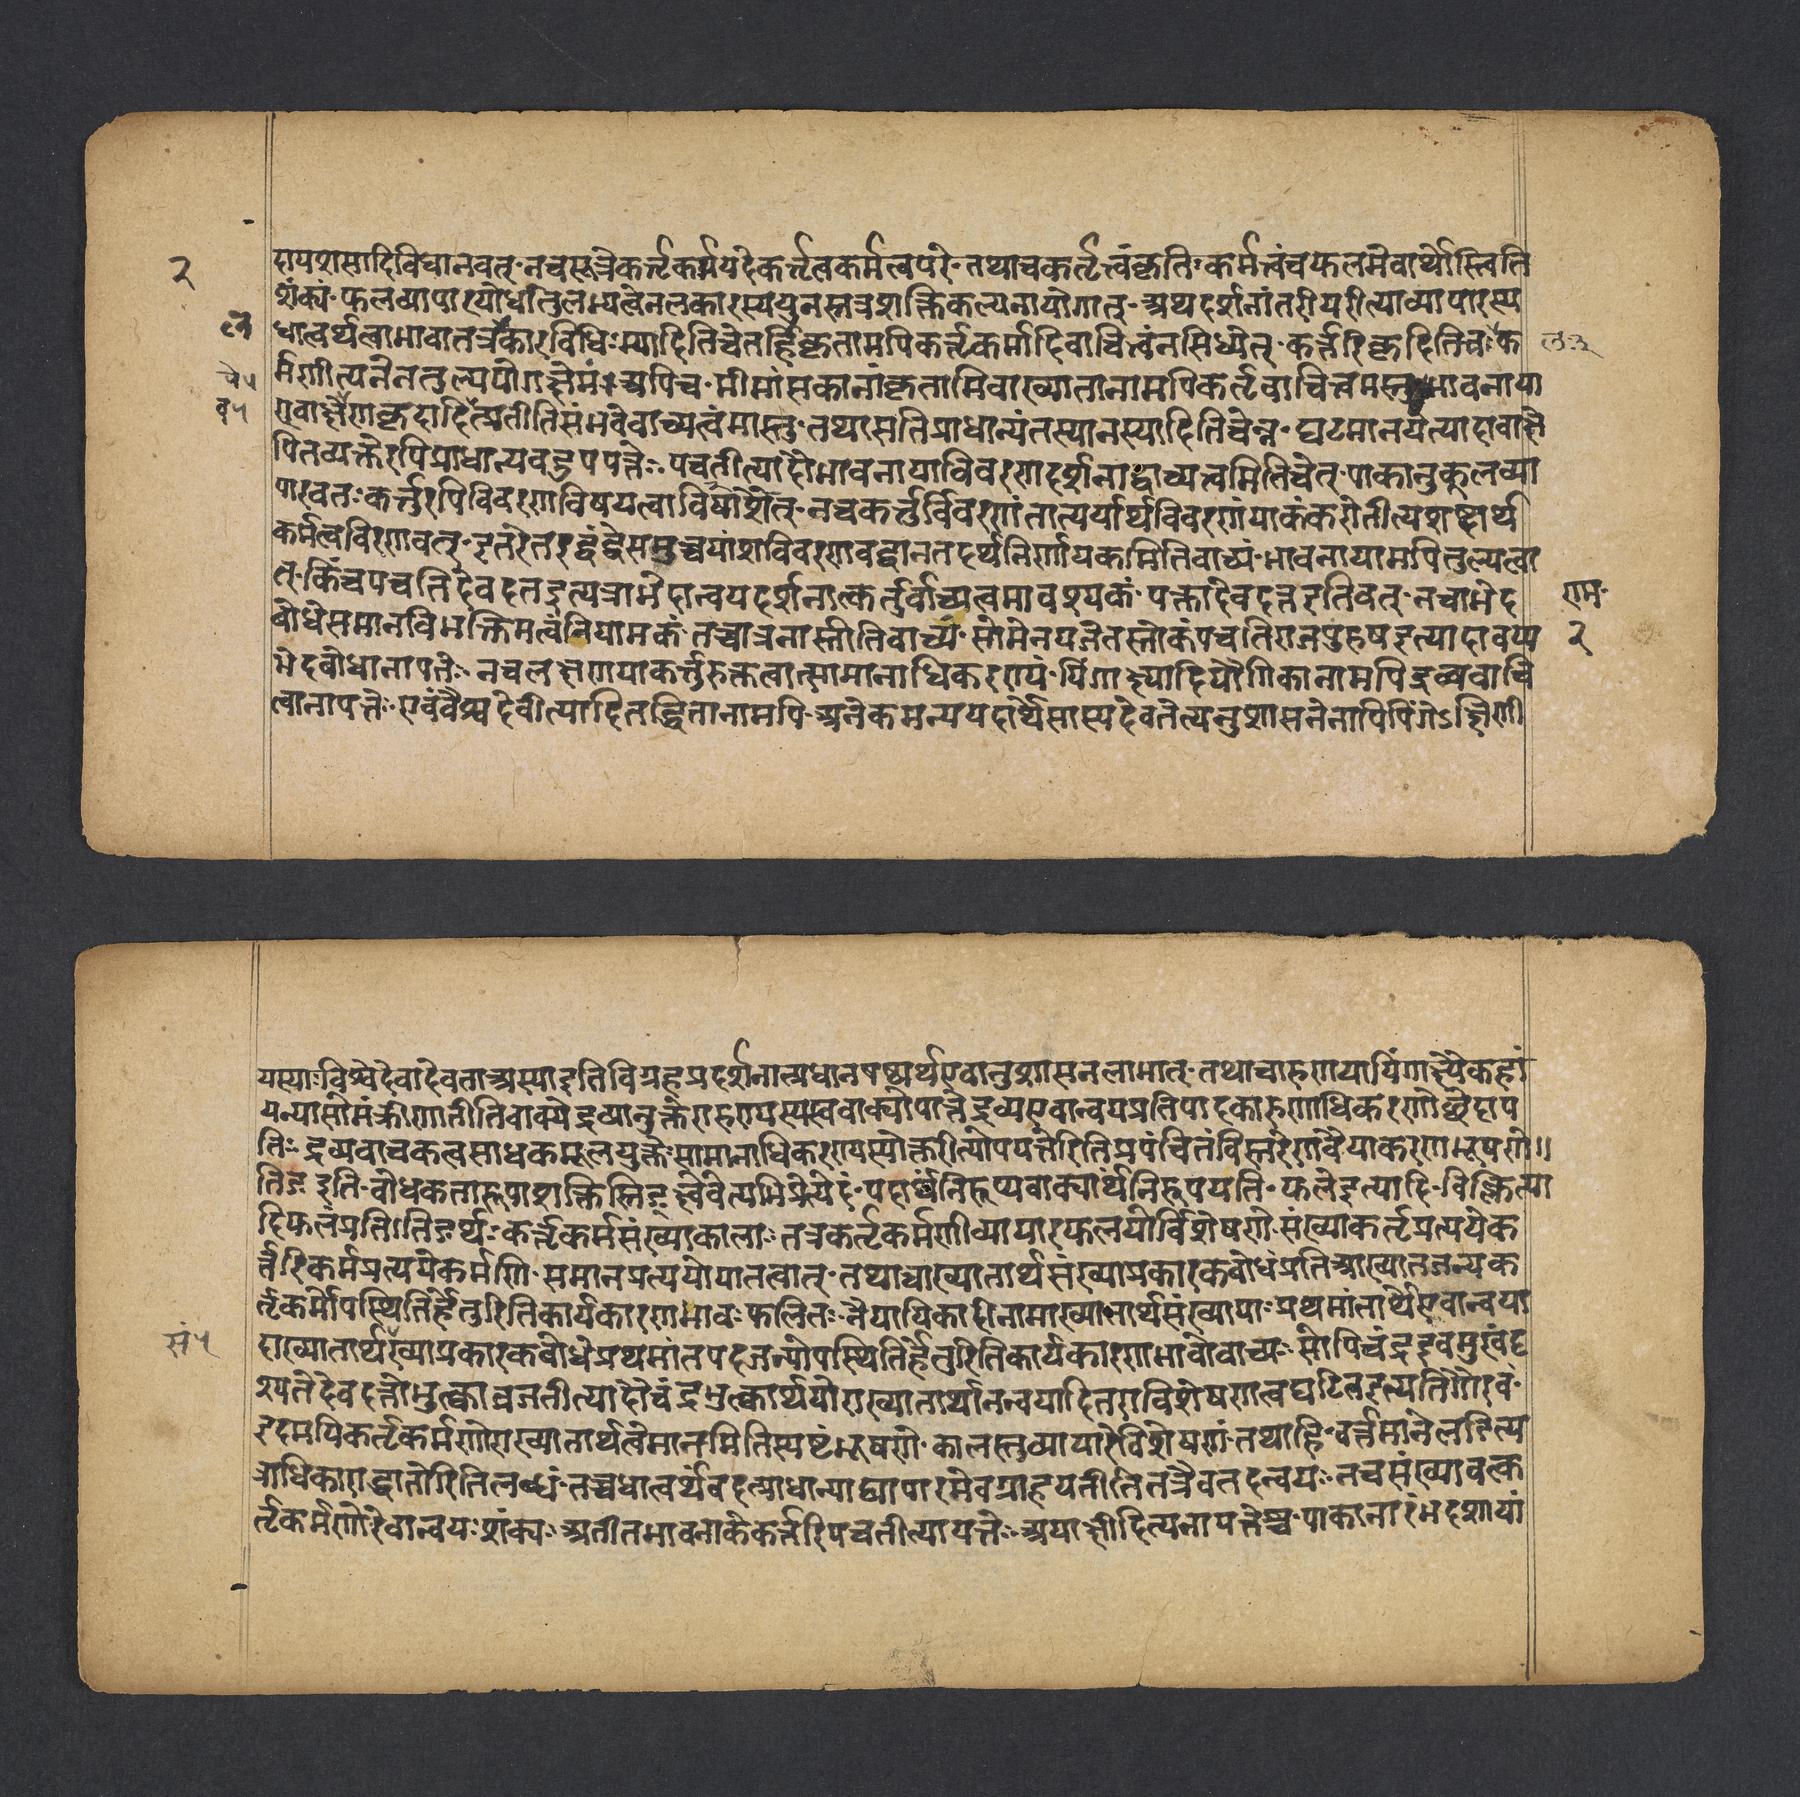 २
दायशसादिविधानवत्· नचसूत्रेकर्त्तृकर्मपदेकर्त्तृत्वकर्मत्वपरे· तथाचकर्त्तृत्वंकृतिः कर्मत्वंचफलमेवार्थोस्त्विति
शंक्यं· फलव्यापारयोर्धातुलभ्यत्वेनलकारस्यपुनस्तत्रशक्तिकल्पनायोगात्· अथदर्शनांतरीयरीत्याव्यापारस्य
धात्वर्थत्वाभावातत्रलकारविधिः स्यादितिचेतर्हिकृतामपिकर्त्तृकर्मादिवाचित्वंनसिध्येत्· कर्त्तरिकृदितिचः क
र्मणीत्यनेनतुल्ययोगक्षेमं· अपिच· मीमांसकानांकृतामिवाख्यातानामपिकर्त्तृवाचित्वमस्तु भावनाया
एवाक्षेपेणकृदादित्प्रतीतिसंभवेवाच्यत्वंमास्तु· तथासतिप्राधान्यंतस्यानस्यादितिचेन्न· घटमानयेत्यादावाक्षे
पितव्यक्तेरपिप्राधान्यवदुपपत्तेः· पचतीत्यादौभावनायाविवरणदर्शनाद्वाच्यत्वमितिचेत्· पाकानुकूलव्या
पारवतः कर्त्तुरपिविवरणविषयत्वाविशेषात्· नचकर्त्तुर्विवरणंतात्पर्यार्थविवरणंपाकंकरोतीत्यशब्दार्थ
कर्मत्वविरणवत्· इतरेतरद्वंद्वेसमुच्चयांशविवरणवद्वानतदर्थनिर्णायकमितिवाच्यं· भावनायामपितुल्यत्वा
त्· किंचपचतिदेवदतइत्यत्राभेदान्वयदर्शनात्कर्तुर्वाच्यत्वमावश्यकं· पक्तादेवदत्तइतिवत्· नचाभेद
राम·
बोधेसमानविभक्तिमत्वंनियामकं· तच्चात्रनास्तीतिवाच्यं· सोमेनयजेतस्तोकंपचतिराजपुरुषइत्यादावप्य
२
भेदबोधानापत्तेः· नचलक्षणयाकर्त्तुरुक्तत्वात्सामानाधिकरण्यं· पिंगाक्ष्यादियौगिकानामपिद्रव्यवाचि
त्वानापत्तेः· एवंवैश्वदेवीत्यादितद्धितानामपि· अनेकमन्यपदार्थेसास्यदेवतेत्यनुशासनेनापिपिंगेऽक्षिणी
यस्याः विश्वेदेवादेवताअस्याइतिविग्रहप्रदर्शनात्प्रधानषष्ठ्यर्थएवानुशासनलाभात्· तथाचारुणयापिंगाक्ष्यैकहा
यन्यासोमंक्रीणातीतिवाक्येद्रव्यानुक्तेरारुण्यस्यस्ववाक्योपात्तेद्रव्यएवान्वयप्रतिपादकारुणाधिकरणोच्छेदाप
तिः· द्रव्यवाचकत्वसाधकमूलयुक्तेः सामानाधिकरण्यस्योक्तरीत्योपपत्तेरितिप्रपंचितंविस्तरेणवैयाकरणभूषणे॥
तिङइति· बोधकतारूपाशक्तिस्तिङ्क्ष्वेवेत्यभिप्रेत्येदं· पदार्थंनिरूप्यवाक्यार्थंनिरूपयति· फलेइत्यादि· विक्लित्त्या
दिफलंप्रति। तिङर्थः· कर्त्तृकर्मसंख्याकालाः· तत्रकर्त्तृकर्मणीव्यापारफलयोर्विशेषणे· संख्याकर्त्तृप्रत्ययेक
र्त्तरिकर्मप्रत्ययेकर्मणि· समानप्रत्ययोपातत्वात्· तथाचाख्यातार्थसंख्याप्रकारकबोधंप्रतिआख्यातजन्यक
र्त्तृकर्मोपस्थितिर्हेतुरितिकार्यकारणभावः· फलितः· नैयायिकादीनामाख्यातार्थसंख्यायाः· प्रथमांतार्थएवान्वया
सं५
दाख्यातार्थख्याप्रकारकबोधेप्रथमांतपदजन्योपस्थितिर्हेतुरितिकार्यकारणभावोवाच्यः· सोपिचंद्रइवमुखंदृ
श्यतेदेवदत्तोभुत्काव्रजतीत्यादौचंद्रभुत्कार्थयोराख्यातार्थानन्वयादितराविशेषणत्वघटितइत्यतिगौरवं·
इदमपिकर्त्तृकर्मणोराख्यातार्थत्वेमानमितिस्पष्टंभूषणे· कालस्तुव्यापारेविशेषणं· तथाहि· वर्त्तमानेलडित्य
त्राधिकाराद्धातोरितिलब्धं· तच्चधात्वर्थंवदत्प्राधान्याद्व्यापारमेवग्राहयतीतितत्रैवतदन्वयः· नचसंख्यावत्क
र्त्तृकर्मणोरेवान्वयः शंक्यः· अतीतभावनाकेकर्त्तरिपचतीत्यापत्तेः· अपाक्षीदित्यनापत्तेश्च· पाकानारंभदशायां